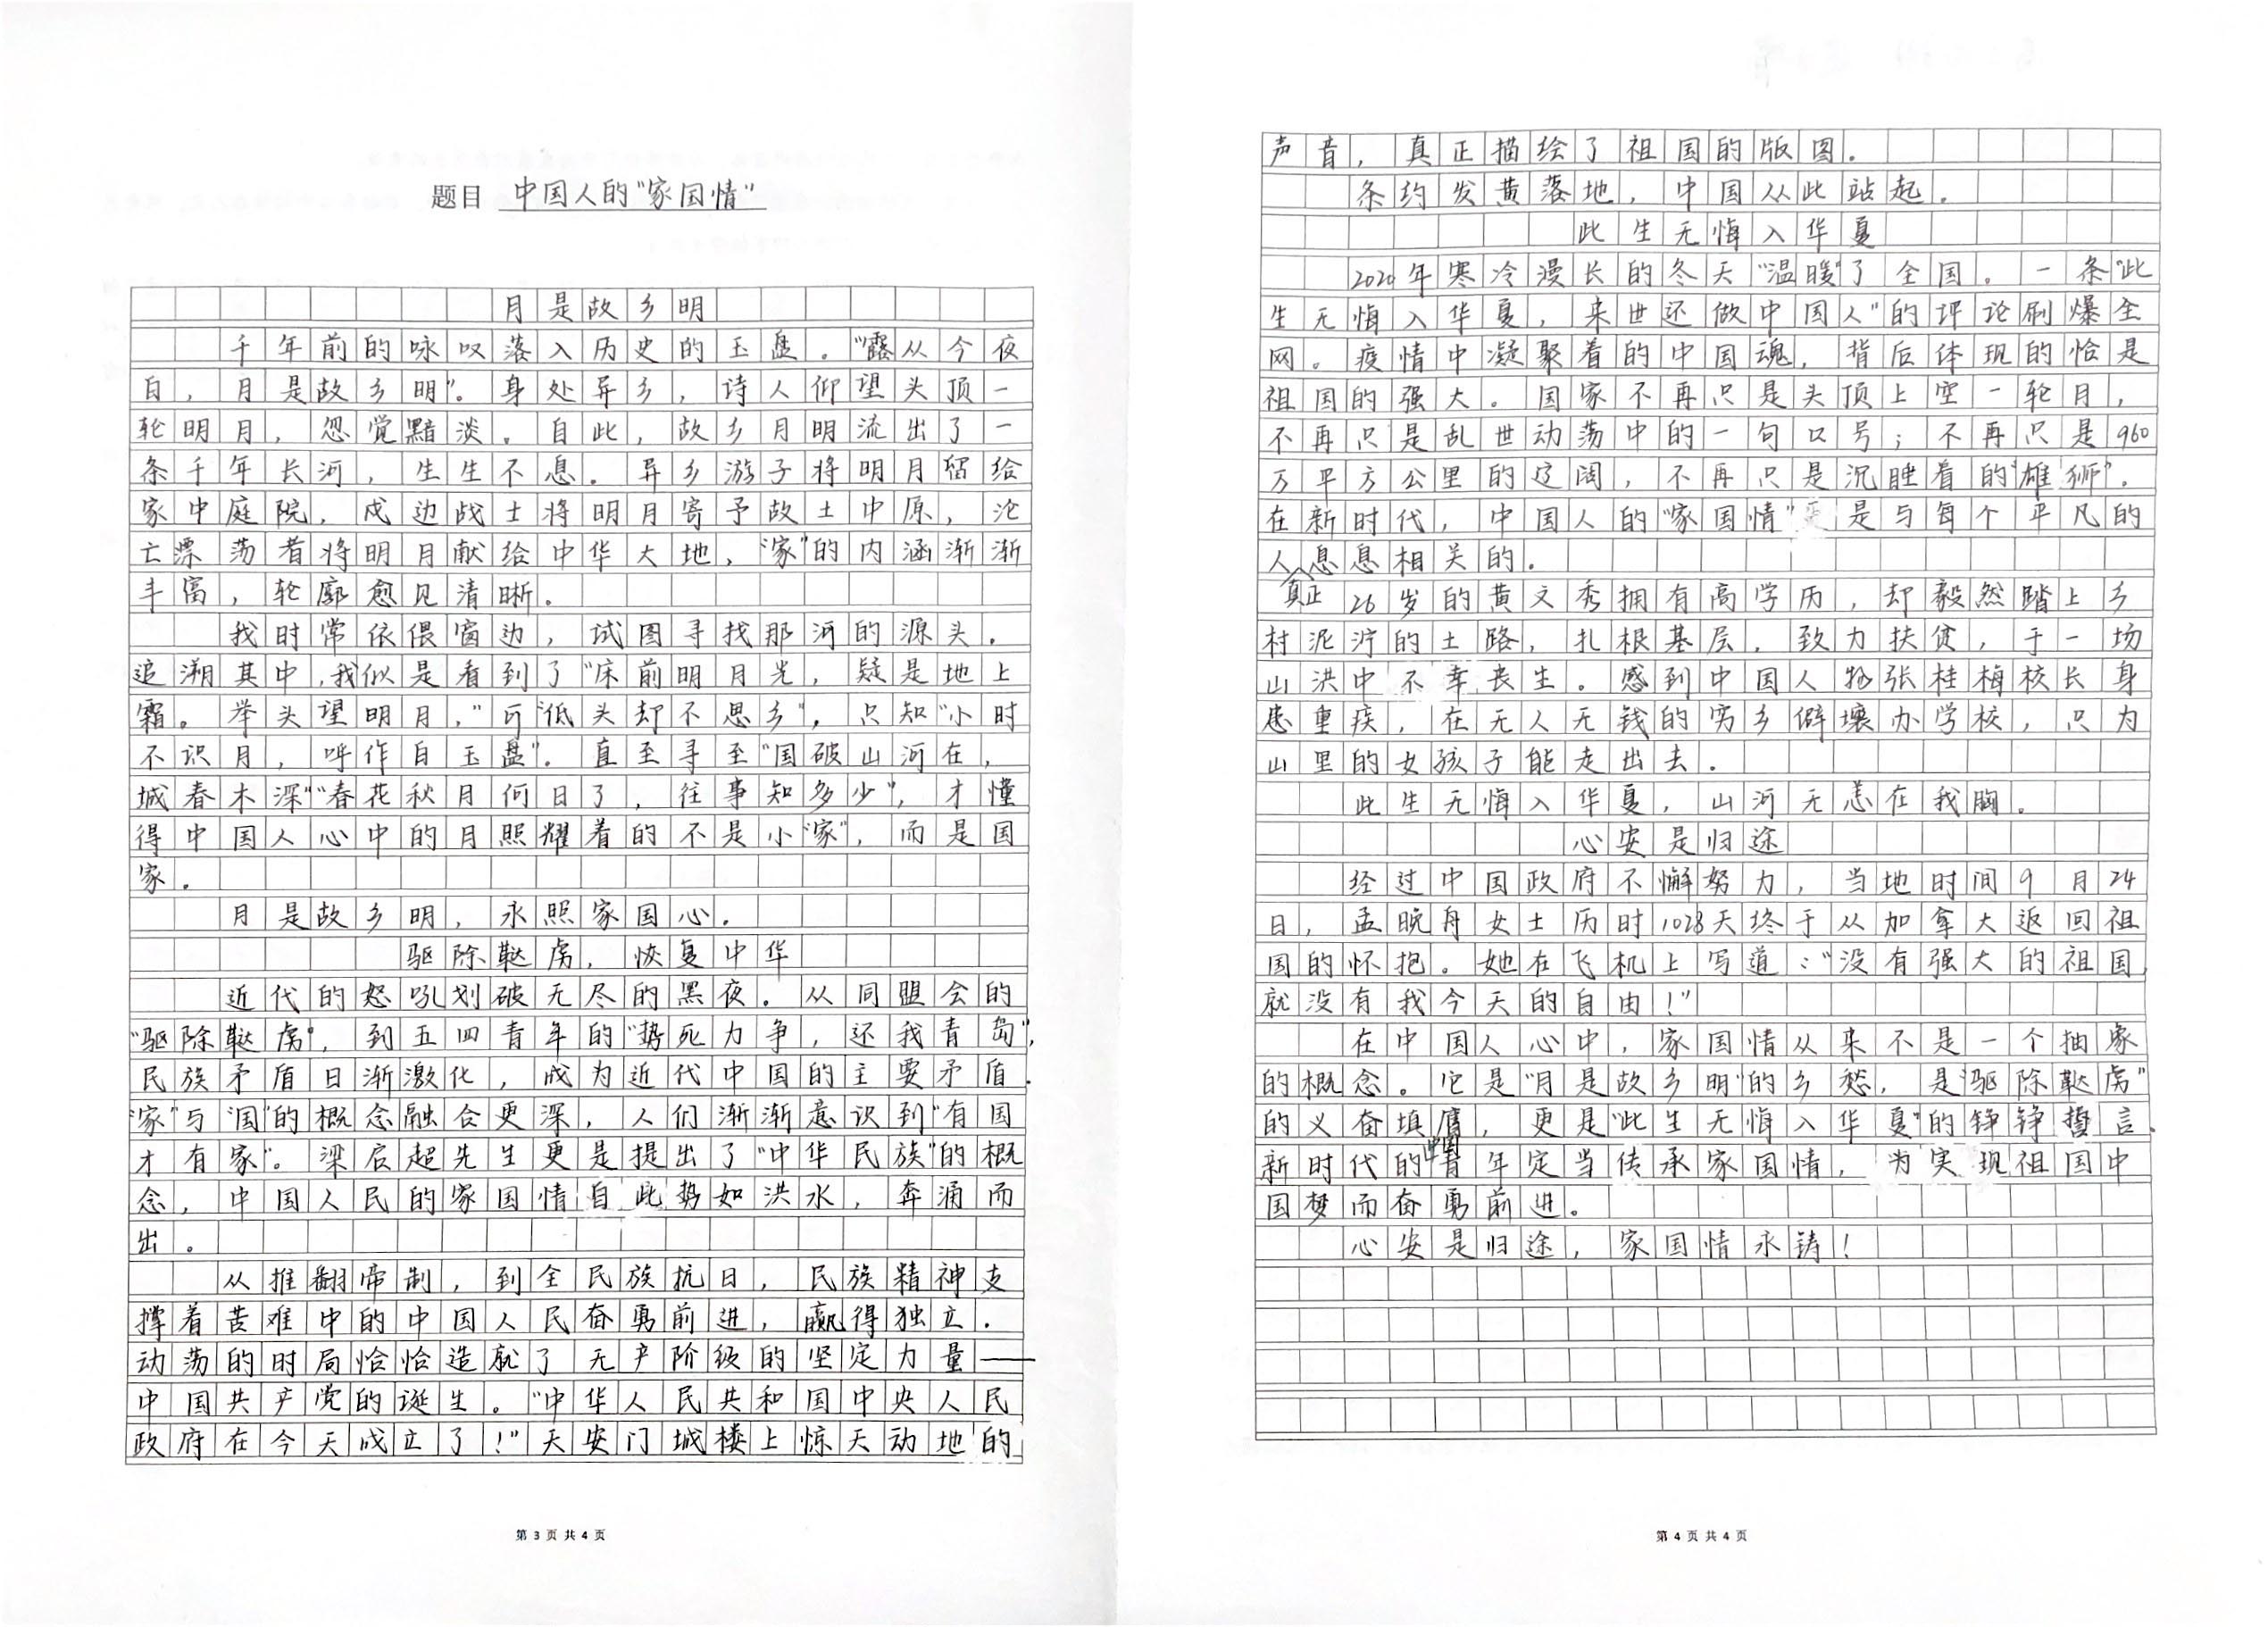 题目 中国人的"家国情"
月是故乡明
千年前的咏叹落入历史的玉盘。"露从今夜
白,月是故乡明"。身处异乡,诗人仰望头顶一
轮明月,忽觉黯淡。自此,故乡月明流出了一
条千年长河,生生不息。异乡游子将明月留给
家中庭院,戍边战士将明月寄予故土中原,沦
亡漂荡者将明月献给中华大地,"家"的内涵渐渐
丰富,轮廓愈见清晰。
我时常依偎窗边,试图寻找那河的源头。
追溯其中,我似是看到了"床前明月光,疑是地上
霜。举头望明月,"可"低头却不思乡",只知"小时
不识月,呼作白玉盘"。直至寻至"国破山河在,
城春木深""春花秋月何日了,往事知多少",才懂
得中国人心中的月照耀着的不是小"家",而是国
家。
月是故乡明,永照家国心。
驱除鞑虏,恢复中华
近代的怒吼划破无尽的黑夜。从同盟会的
"驱除鞑虏",到五四青年的"势死力争,还我青岛",
民族矛盾日渐激化,成为近代中国的主要矛盾。
"家"与"国"的概念融合更深,人们渐渐意识到"有国
才有家"。梁启超先生更是提出了"中华民族"的概
念,中国人民的家国情自此势如洪水,奔涌而
出。
从推翻帝制,到全民族抗日,民族精神支
撑着苦难中的中国人民奋勇前进,赢得独立。
动荡的时局恰恰造就了无产阶级的坚定力量——
中国共产党的诞生。"中华人民共和国中央人民
政府在今天成立了!"天安门城楼上惊天动地的
第 3 页 共 4 页
声音,真正描绘了祖国的版图。
条约发黄落地,中国从此站起。
此生无悔入华夏
2020年寒冷漫长的冬天"温暖"了全国。一条"此
生无悔入华夏,来世还做中国人"的评论刷爆全
网。疫情中凝聚着的中国魂,背后体现的恰是
祖国的强大。国家不再只是头顶上空一轮月,
不再只是乱世动荡中的一句口号;不再只是960
万平方公里的辽阔,不再只是沉睡着的"雄狮"。
在新时代,中国人的"家国情"更是与每个平凡的
人息息相关的。
真正
26岁的黄文秀拥有高学历,却毅然踏上乡
村泥泞的土路,扎根基层,致力扶贫,于一场
山洪中不幸丧生。感到中国人物张桂梅校长身
患重疾,在无人无钱的穷乡僻壤办学校,只为
山里的女孩子能走出去。
此生无悔入华夏,山河无恙在我胸。
心安是归途
经过中国政府不懈努力,当地时间9月24
日,孟晚舟女士历时1028天终于从加拿大返回祖
国的怀抱。她在飞机上写道:"没有强大的祖国,
就没有我今天的自由!"
在中国人心中,家国情从来不是一个抽象
的概念。它是"月是故乡明"的乡愁,是"驱除鞑虏"
的义奋填膺,更是"此生无悔入华夏"的铮铮誓言、
新时代的中国青年定当传承家国情,为实现祖国中
国梦而奋勇前进。
心安是归途,家国情永铸!
第 4 页 共 4 页